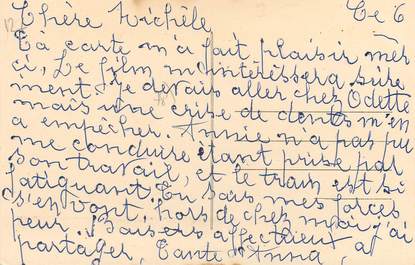 Chère Michèle Ce 6
Ta carte m'a fait plaisir mer
ci, Le film m'intéressera sûre
iment je devais aller chez Odette
mais une crise de dents m'en
a empêcher. Annie n'a pas pu
me conduire étant prise par
son travail, et le train est si
fatiguant. Tu sais mes forces
s'en vont hors de chez moi j'ai
peur. Baisers affectueux à
partager, Tante Anna,